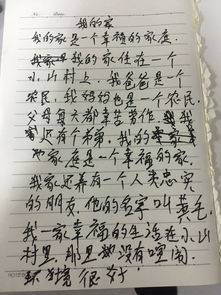 我的家
我的家是一个幸福的家庭。
我的家住在一个
小山村上，我爸爸是一个
农民，我妈妈也是一个农民，
父母每天都辛苦劳作，我
还有个弟弟，我的
家庭是一个幸福的家。
我家还养有一个人类忠实
的朋友，他的名字叫黄毛
我一家幸福的生活在小山
村里，那里没有喧闹，
环境很好